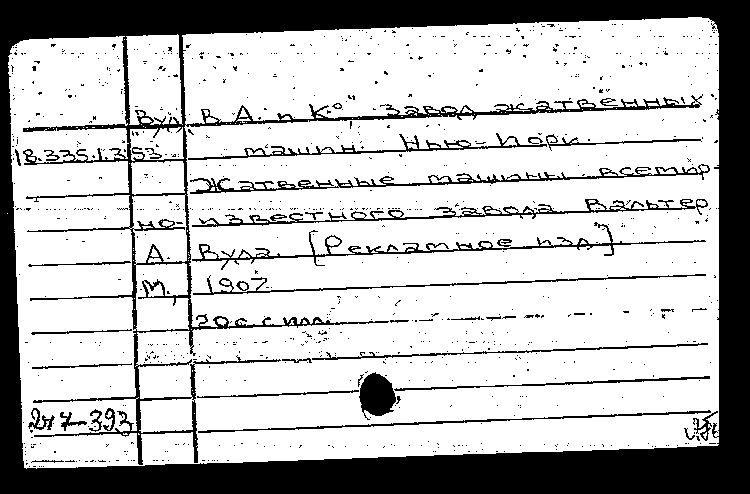 Вуд, В А. и К°", Завод жатвенных
18.335.1.353 машин. Нью-Йорк.
Жатвенные машины всемир-
но-известного завода Вальтер
А. Вуда. [Рекламное изд.].
М., 1907
20 с. с илл.
247-393